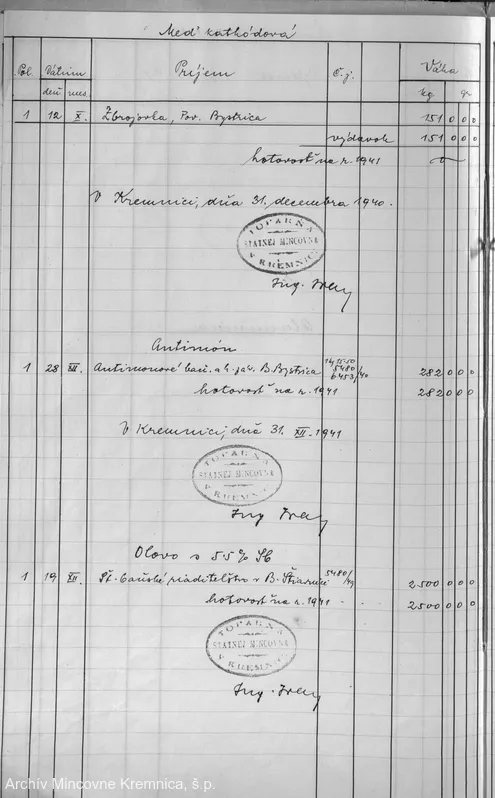 Meď kathódová
Pol. Dátum Príjem Č. j. Váha
deň mes. kg gr
1 12 X. Zbrojovka, Pov. Bystrica 151 0 0 0
výdavok 151 0 0 0
hotovosť na r. 1941
V Kremnici, dňa 31. decembra 1940.
TOPARŇA
ŠTÁTNEJ MINCOVNA
V KREMNICI
Ing.
Antimón
1 28 XII. Antimonové baň. a h. záv. B. Bystrica 5480 6453/40 282 0 0 0
hotovosť na r. 1941 282 0 0 0
V Kremnici, dňa 31. XII. 1941
TOPARŇA
ŠTÁTNEJ MINCOVNA
V KREMNICI
Ing
Olovo s 55% Sb
1 19 XII. Št. banské riaditeľstvo v B. Štiavnici 5480/ 2500 0 0 0
hotovosť na r. 1941 2500 0 0 0
TOPARŇA
ŠTÁTNEJ MINCOVNA
V KREMNICI
Ing.
Archív Mincovne Kremnica, š.p.